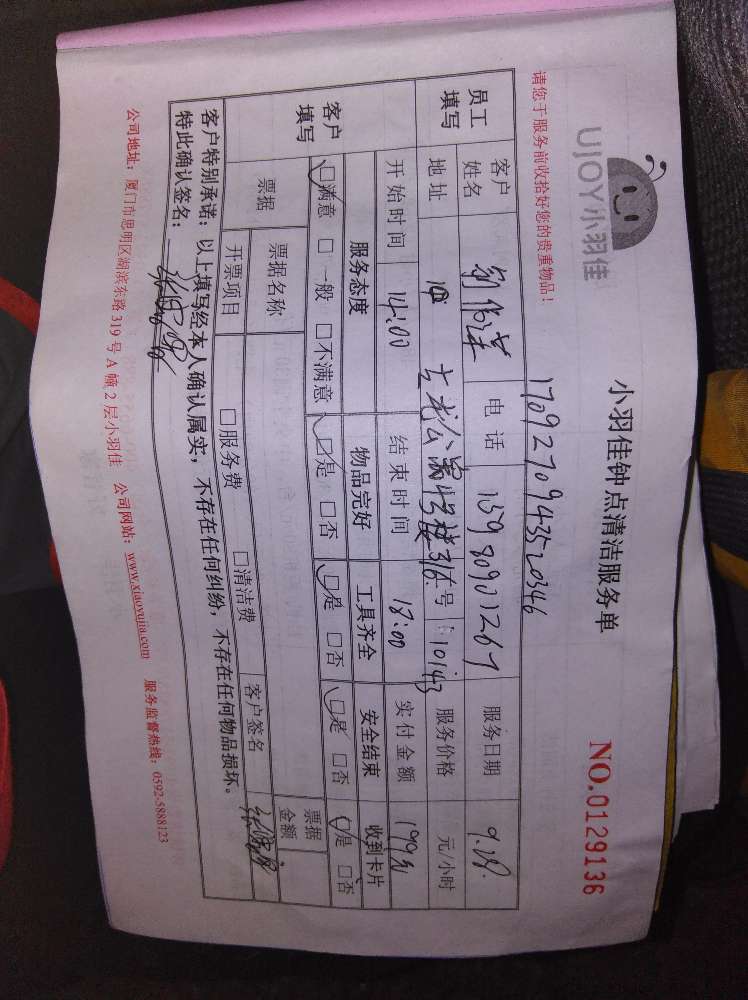 UJOY小羽佳
小羽佳钟点清洁服务单
NO.0129136
请您于服务前收拾好您的贵重物品!
1709270943520346
员工填写 客户姓名 电话 15980901267 服务日期 9.28.
地址 316. 工号 10143 服务价格 元/小时
开始时间 14:00 结束时间 18:00 实付金额 199元
客户填写 服务态度 物品完好 工具齐全 安全结束 收到卡片
☑满意 □一般 □不满意 ☑是 □否 ☑是 □否 ☑是 □否 ☑是 □否
票据 票据名称 票据金额
开票项目 □服务费 □清洁费 客户签名
客户特别承诺:以上填写经本人确认属实,不存在任何纠纷,不存在任何物品损坏。
特此确认签名:
公司地址:厦门市思明区湖滨东路319号A幢2层小羽佳 公司网站:www.xiaoyujia.com 服务监督热线:0592-5888123